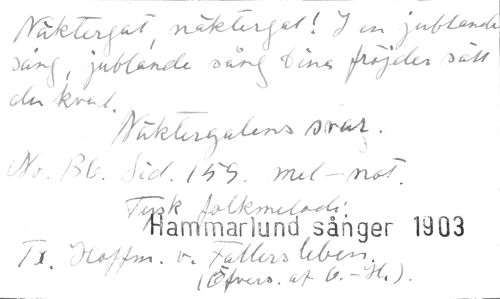 Näktergal, näktergal! I en jublande
sång, jublande sång Dina fröjder sätt
du kval.
Näktergalens svar.
No. 136. Sid. 159. mel-not.
Tysk folkmelodi.
Hammarlund sånger 1903
Tx. Hoffm. v. Fallersleben.
(Öfvers. af G.-H.).